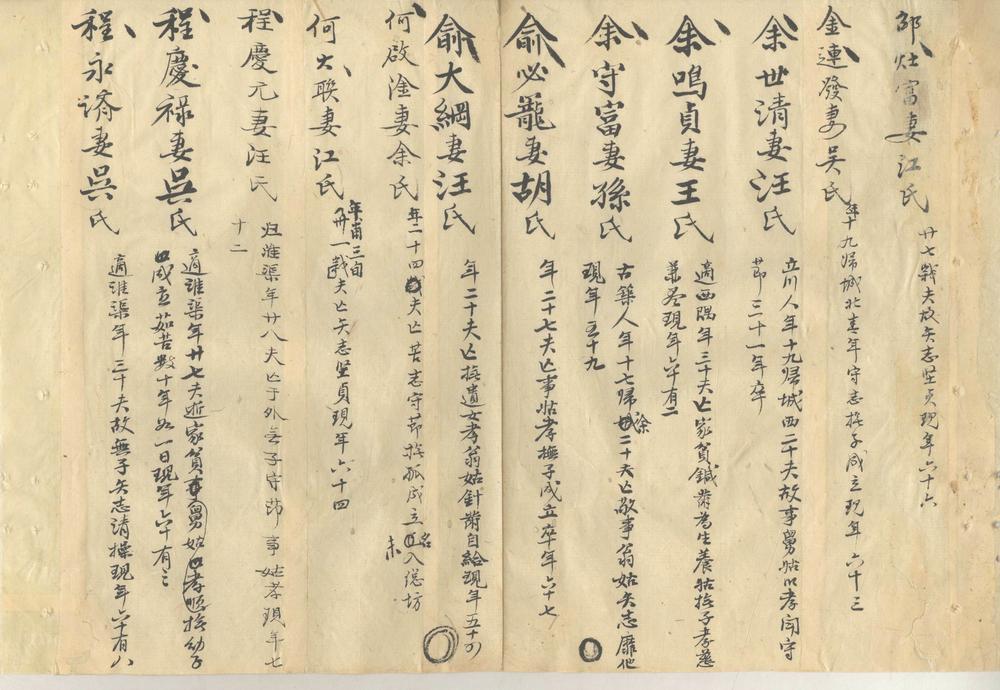 邵灶富妻江氏
廿七歲夫故矢志堅貞現年六十六
金連發妻吳氏
年十九歸城北青年守志撫子成立現年六十三
余世清妻汪氏
立川人年十九歸城西二十夫故事舅姑以孝聞守
節三十一年卒
余鳴貞妻王氏
適西隅年三十夫亡家貧鍼黹為生養姑撫子孝慈
兼盡現年六十有二
余守富妻孫氏
古築人年十七歸徐二十夫亡敬事翁姑矢志靡他
現年五十九
俞必龍妻胡氏
年二十七夫亡事姑孝撫子成立卒年六十七
俞大綱妻汪氏
年二十夫亡撫遺女孝翁姑針黹自給現年五十四
何啟淦妻余氏
年二十四夫亡苦志守節撫孤成立名入總坊
未
何大聯妻江氏
年甫三旬
夫亡矢志堅貞現年六十四
程慶元妻汪氏
归淮渠年廿八夫亡于外無子守節事姑孝現年七
十二
程慶祿妻吳氏
適淮渠年廿七夫逝家貧事舅姑孝順撫幼子
成立茹苦數十年如一日現年六十有三
程永濟妻吳氏
適淮渠年三十夫故無子矢志清操現年六十有八